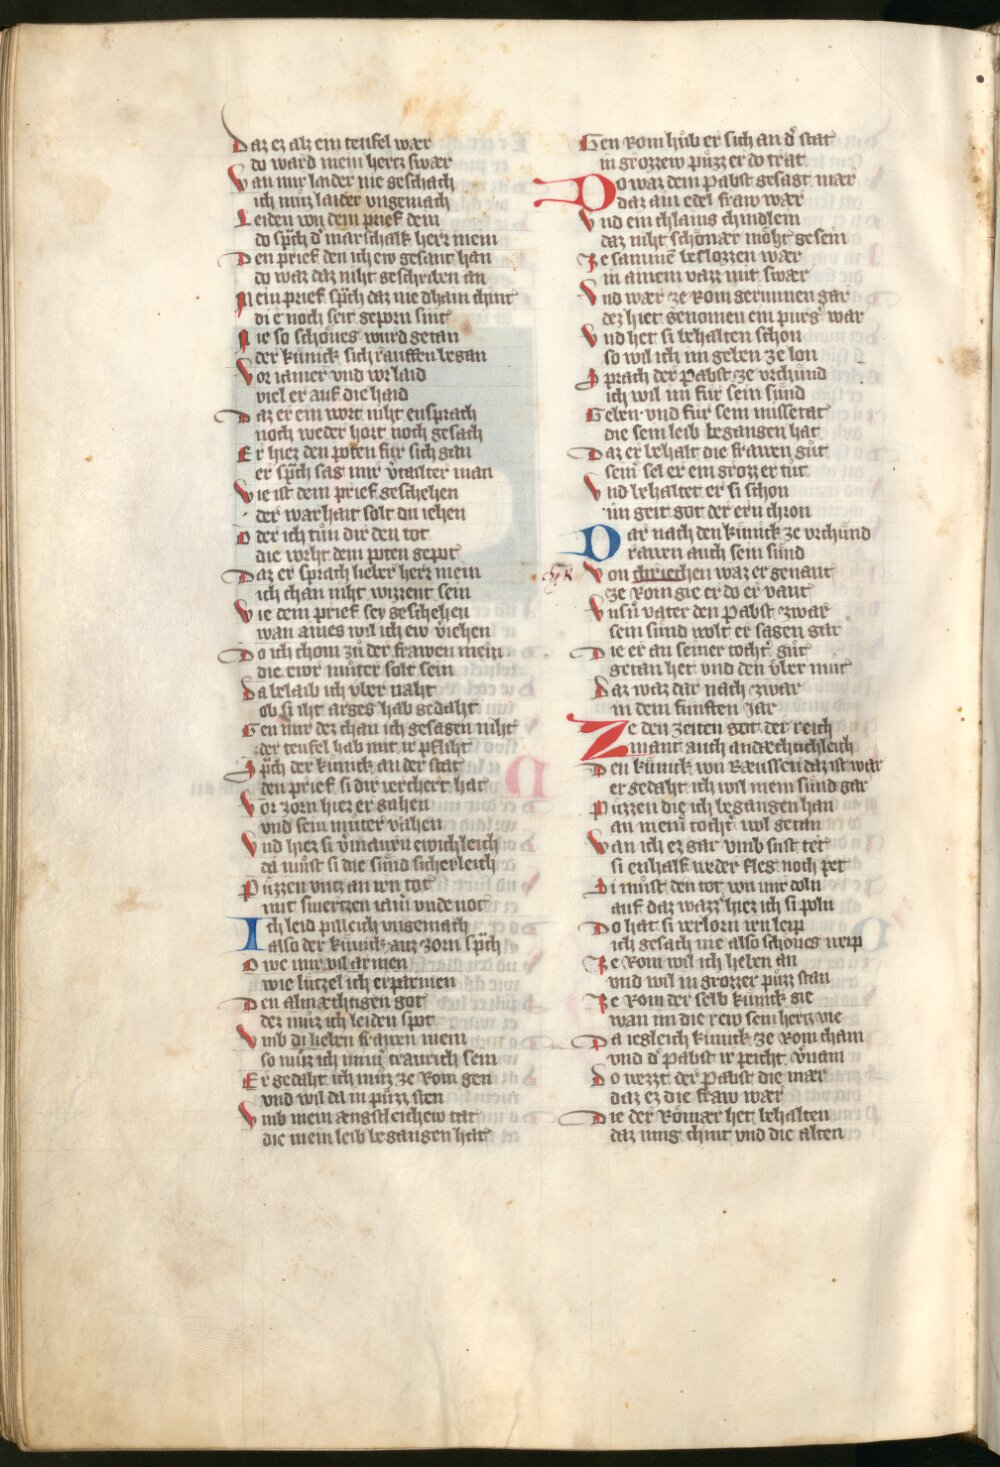 Daz ez alz ein teufel wær
do ward mein hertz swær
Wan mir laider nie geschach
ich muz laider vngemach
Leiden von dem prief dem
do sp̃ch d' marschalk herr mein
Den prief den ich ew gesant han
do waz daz niht geschriben an
Mein prief sp̃ch daz nie dhain chint
die noch seit geporn sint
Nie so schönes wurd getan
der künick sich rauffen began
Vor iamer vnd vor laid
viel er auf die haid
Daz er ein wort niht ensprach
noch weder hort noch gesach
Er hiez den poten für sich gan
er sp̃ch sag mir v'tailter man
Wie ist dem prief geschehen
der warhait solt du iehen
Oder ich tůn dir den tot
die vorht dem poten gepot
Daz er sprach lieber herr mein
ich chan niht wizzent sein
Wie dem prief sey geschehen
wan aines wil ich ew v'iehen
Do ich chom zů der frawen mein
die ewr můter solt sein
Da belaib ich vber naht
ob si iht arges hab gedaht
Gen mir dez chan ich gesagen niht
der teufel hab mit ir pfliht
Sp̃ch der künick an der stat
den prief si dir verchert hat
Vor zorn hiez er gahen
vnd sein můter vahen
Vnd hiez si v'mauren ewichleich
da můst si die sünd sicherleich
Püzzen vntz an irn tot
mit smertzen iam' vnde not
Ich leid pilleich vngemach
also der künick auz zorn sp̃ch
Owe mir vil armen
wie lützel ich erparmen
Den almæchtigen got
dez můz ich leiden spot
Vmb di lieben frawen mein
so můz ich imm' traurich sein
Er gedaht ich můz ze Rom gen
vnd wil da in půzz sten
Vmb mein ængstleichew tat
die mein leib begangen hat
Gen Rom hůb er sich an d' stat
in grozzew půzz er do trat
Do waz dem Pabst gesagt mær
daz ain edel fraw wær
Vnd ein chlains chindlein
daz niht schönær möht gesein
Ze sammē beslozzen wær
in ainem vazz mit swær
Vnd wær ze Rom gerunnen gar
dez hiet genomen ein purg' war
Vnd het si behalten schon
so wil ich im geben ze lon
Sprach der Pabst ze vrchünd
ich wil im für sein sünd
Geben vnd für sein missetat
die sein leib begangen hat
Daz er behalt die frawen gůt
sein' sel er ein grozz er tůt
Vnd behaltet er si schon
im geit got der ern chron
Dar nach den künick ze vrchünd
rawen auch sein sünd
Von chriechen waz er genant
ze Rom gie er do er vant
Vnsn̄ vater den Pabst zwar
sein sünd wolt er sagen gar
Die er an seiner tocht' gůt
getan het vnd den vber můt
Daz waz dar nach zwar
in dem fünften Jar
Ze den zeiten got der reich
zwant auch andæchtichleich
Den künick von Ræussen daz ist war
er gedaht ich wil mein sünd gar
Püzzen die ich begangen han
an mein' tocht' wol getan
Wan ich ez gar vmb sust tet
si enhalf weder fleg noch pet
Si můst den tot von mir doln
auf daz wazz' hiez ich si poln
Do hat si verlorn irn leip
ich gesach nie also schönes weip
Ze Rom wil ich heben an
vnd wil in grozzer půzz stan
Ze Rom der selb künick gie
wan im die rew sein hertz vie
Da iegleich künick ze Rom cham
vnd d' Pabst ir peicht v'nam
Do wezzt der Pabst die mær
daz ez die fraw wær
Die der Römær het behalten
daz iung chint vnd die alten